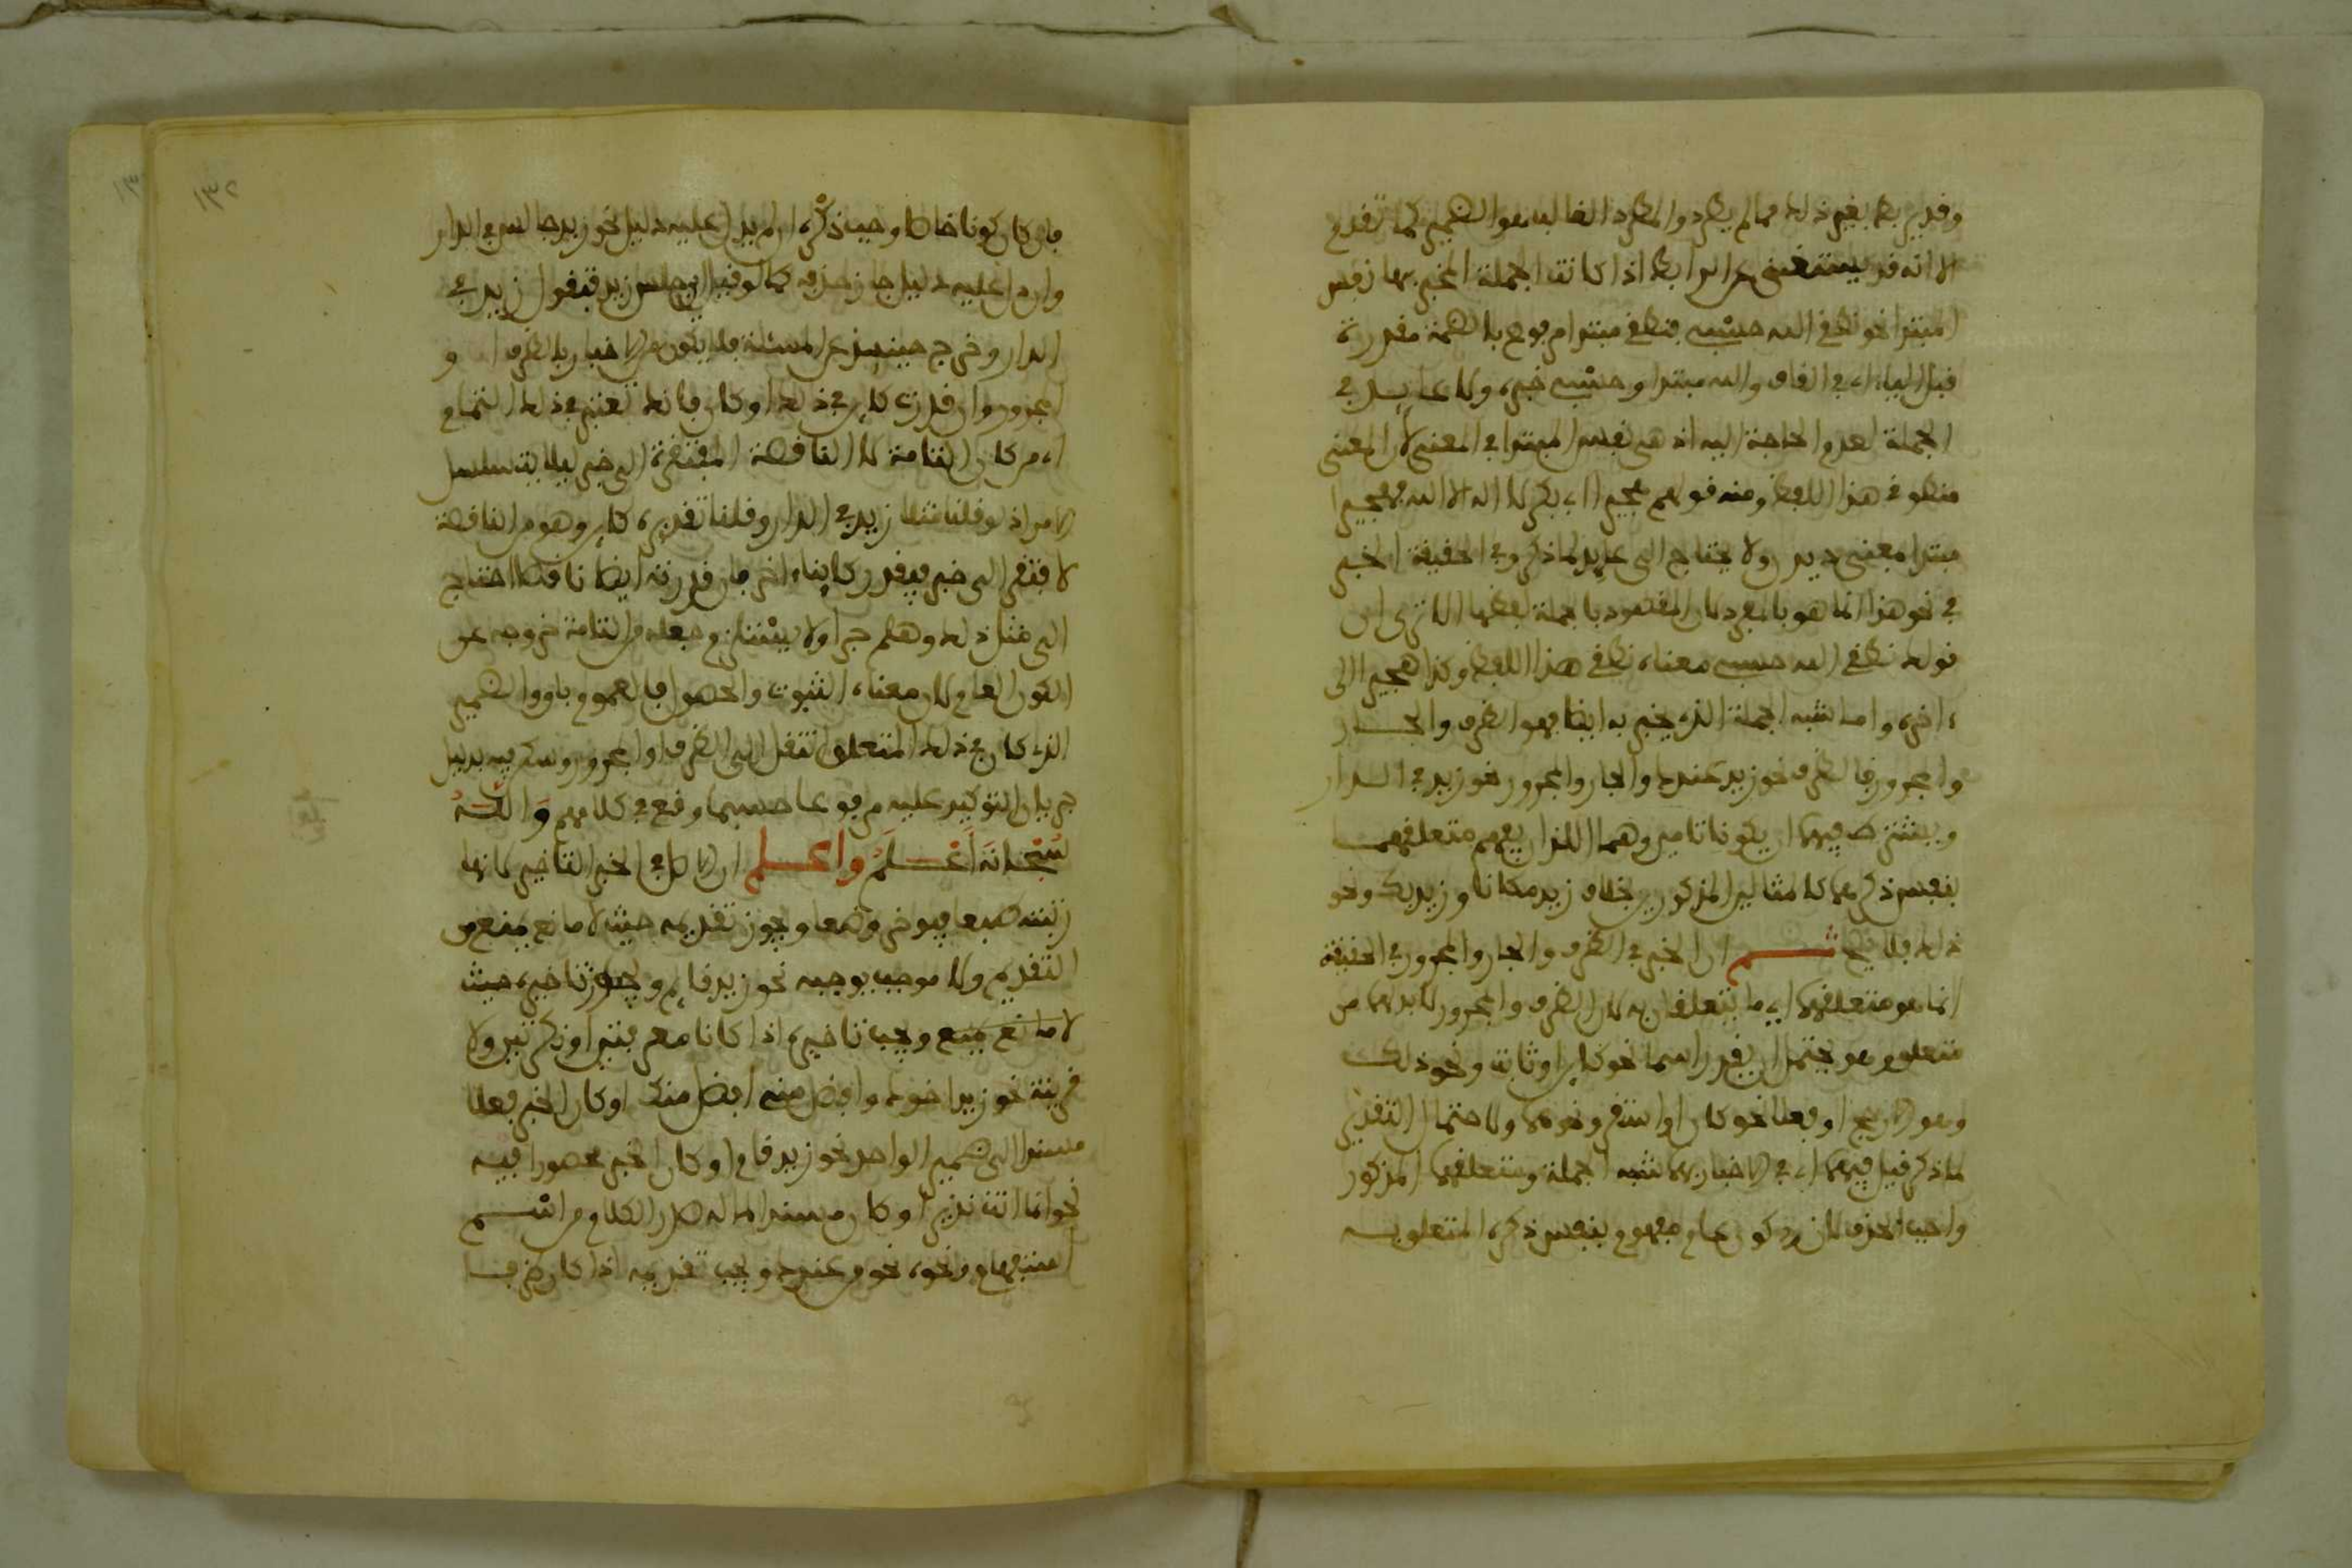 وقد يربط بغير ذلك مما لم يطرد والمطرد الغالب هو الضمير كما تقدم
الا انه قد يستغنى عن الرابط اذا كانت الجملة المخبر بها نفس
المبتدا نحو نطقي الله حسبي فنطقي مبتدا مرفوع بالضمة مقدرة
قبل الياء اي في القاف والله مبتدا وحسبي خبره ولا عايد في
الجملة لعدم الحاجة اليه اذ هي نفس المبتدا في المعنى لان المعنى
منطوقي هذا اللفظ ومنه قولهم هجيرا ابي بكر لا اله الا الله فهجيرا
مبتدا بمعنى ديدن ولا يحتاج الى عايد لما ذكر وفي الحقيقة الخبر
في نحو هذا انما هو بالمفرد لان المقصود بالجملة لفظها الا ترى ان
قولك نطقي الله حسبي معناه نطقي هذا اللفظ وكذا هجيرا الى
اخره واما شبه الجملة الذي يخبر به ايضا فهو الظرف والجار
والمجرور فالظرف نحو زيد عندك والجار والمجرور نحو زيد في الدار
ويشترط فيهما ان يكونا تامين وهما اللذان يفهم متعلقهما
بنفس ذكرهما كالمثالين المذكورين بخلاف زيد مكانا وزيد بك ونحو
ذلك فلا يصح ثم ان الخبر في الظرف والجار والمجرور في الحقيقة
انما هو متعلقهما اي ما يتعلقان به لان الظرف والمجرور لا بد لهما من
متعلق وهو يحتمل ان يقدر اسما نحو كاين او ثابت ونحو ذلك
وهو الارجح او فعلا نحو كان او استقر ونحوهما ولاحتمال التقدير
لما ذكر قيل فيهما اي في الاخبار بهما شبه الجملة ومتعلقهما المذكور
واجب الحذف لانه كون عام مفهوم بنفس ذكر المتعلق به
فان كان كونا خاصا وجب ذكره ان لم يدل عليه دليل نحو زيد جالس في الدار
وان دل عليه دليل جاز حذفه كما لو قيل اين جلس زيد فتقول زيد في
الدار وخرج حينئذ عن المسئلة فلا يكون من الاخبار بالظرف او
المجرور وان قدرت كاين في ذلك او كان فانك تعتبر في ذلك التمام
اي من كان التامة لا الناقصة المفتقرة الى خبر ليلا يتسلسل
الامر اذ لو قلنا مثلا زيد في الدار وقلنا تقديره كاين وهو من الناقصة
لافتقر الى خبر فيقدر كاينا اخر فان قدرته ايضا ناقصا احتاج
الى مثل ذلك وهلم جرا ولا يستلزم جعله من التامة خروجه عن
الكون العام لان معناه الثبوت والحصول فالعموم باق والضمير
الذي كان في ذلك المتعلق انتقل الى الظرف او المجرور وسكن فيه بدليل
جريان التوكيد عليه مرفوعا حسبما وقع في كلامهم والله
سبحانه اعلم واعلم ان الاصل في الخبر التاخير لانها
رتبته طبعا فيوخر وضعا ويجوز تقديمه حيث لا مانع يمنع من
التقديم ولا موجب يوجبه نحو زيد قايم ويجوز تاخيره حيث
لا مانع يمنع ويجب تاخيره اذا كانا معرفتين او نكرتين ولا
قرينة نحو زيد اخوك وافضل منه افضل منك او كان الخبر فعلا
مسندا الى ضمير الواحد نحو زيد قام او كان الخبر محصورا فيه
نحو انما انت نذير او كان مسندا لما له صدر الكلام من اسم
استفهام ونحوه نحو من عندك ويجب تقديمه اذا كان ظرفا
١٣٢